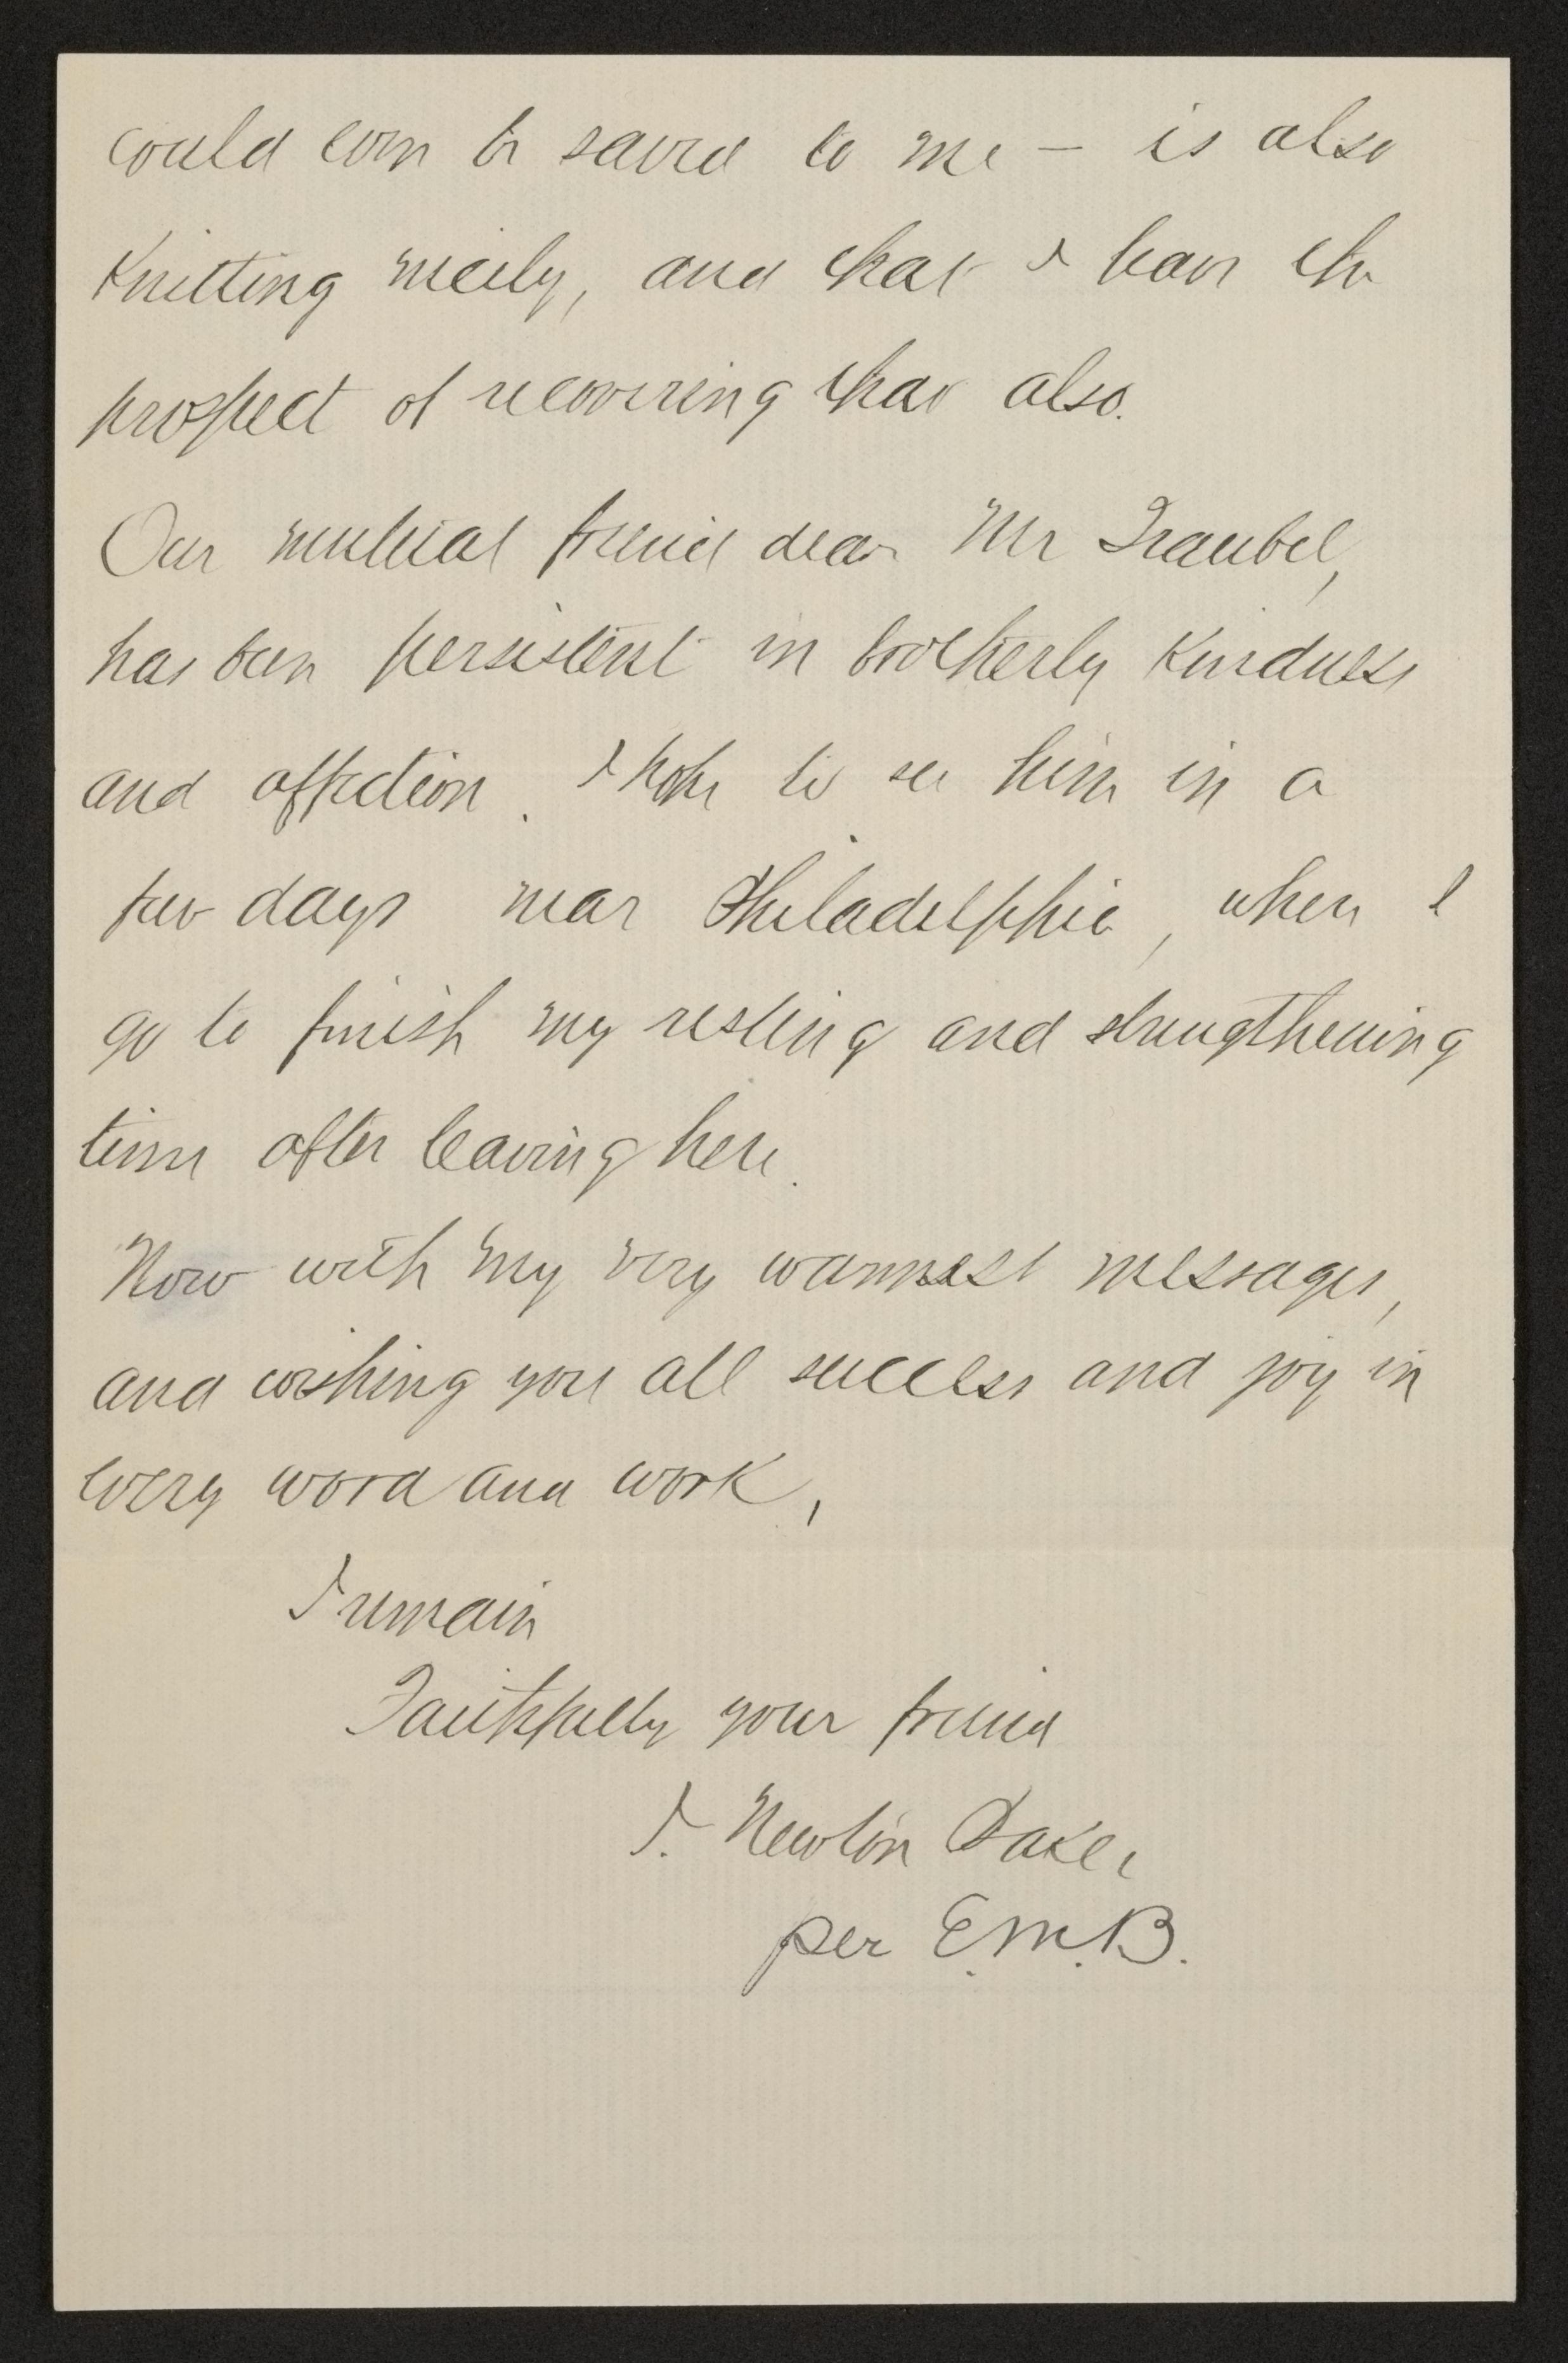 could even be saved to me — is also
Knitting nicely, and that I have the
prospect of recovering that also.
Our mutual friend dear Mr Traubel,
has been persistent in brotherly Kindness
and affection. I hope to see him in a
few days near Philadelphia, when I
go to finish my resting and strengthening
time after leaving here.
Now with my very warmest messages,
and wishing you all success and joy in
every word and work,
I remain
Faithfully your friend
I. Newton Baker
per E.M.B.